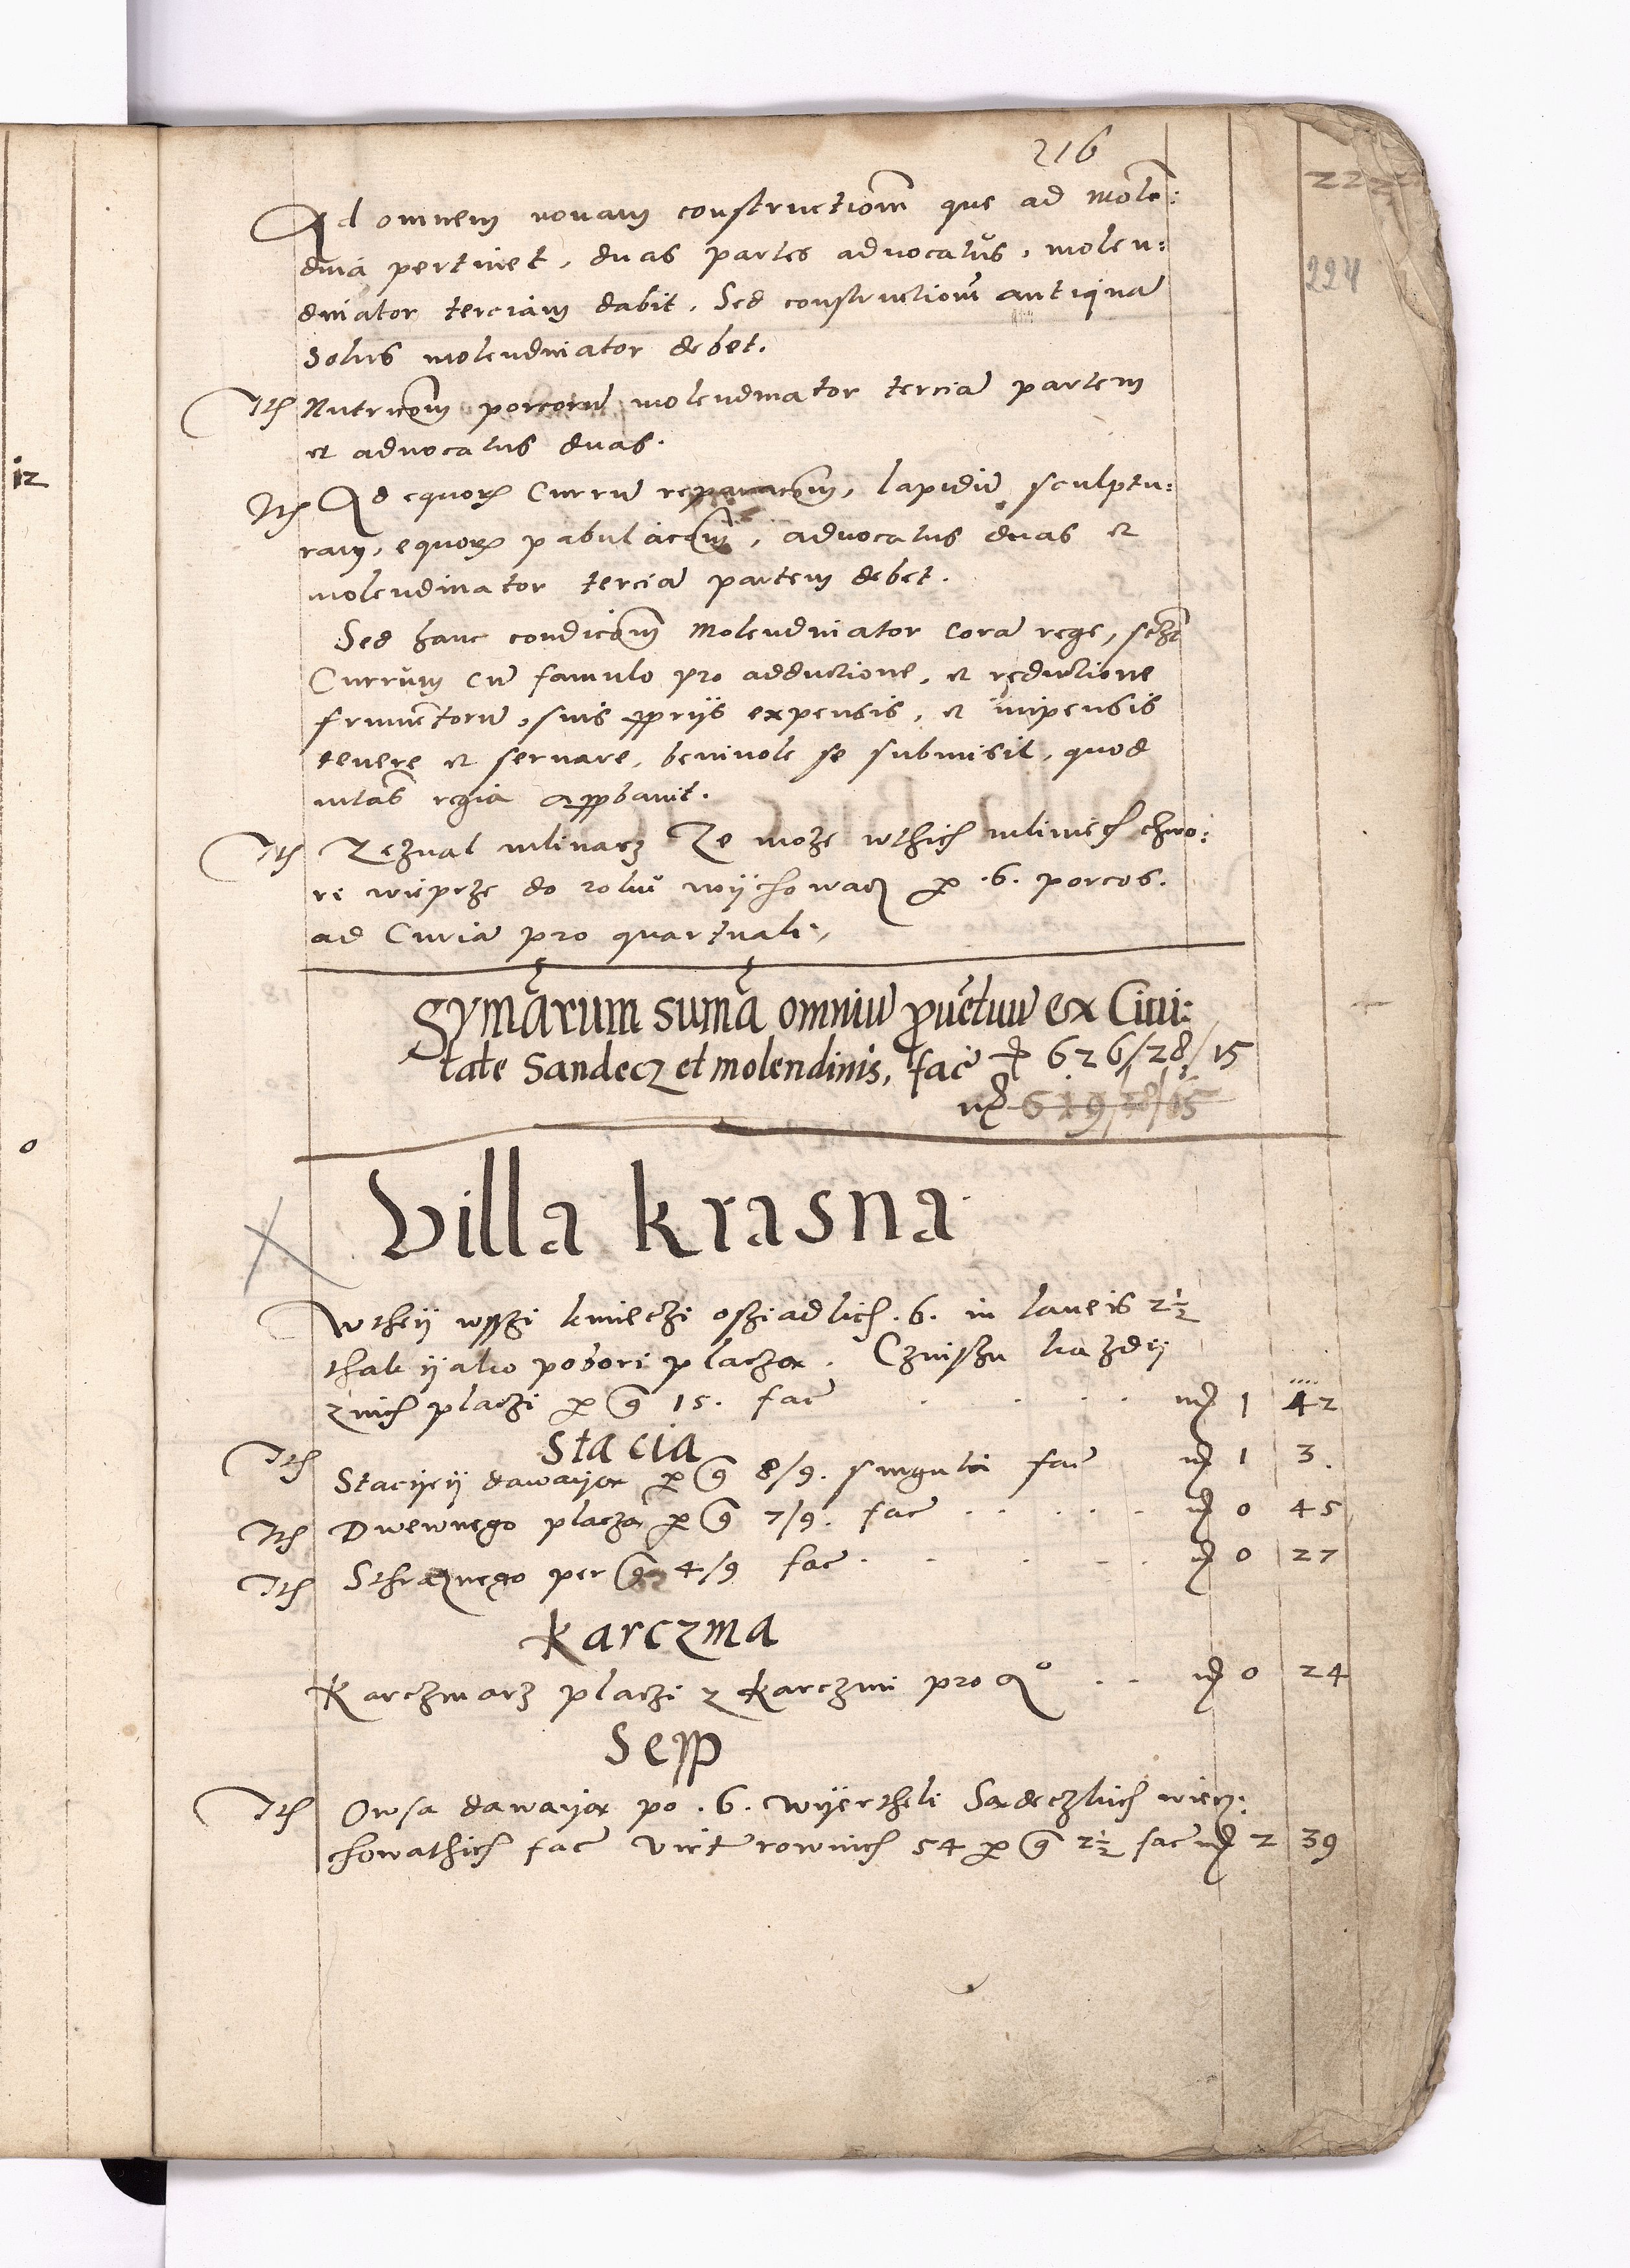 216
222
224
12
0
Ad omnem novam constructiom̄ que ad mole:
dina pertinet, duas partes advocatus, molen:
dinator terciam dabit. Sed constructiom̄ antiquā
Solus molendinator debet.
Itē Nutricōm porcorū molendinator terciā partem
et advocatus duas.
Itē Ad equorꝝ Currū reparacōm, lapidū sculptu:
ram, equorꝝ pabulacōm, advocatus duas et
molendinator terciā partem debet.
Sed hanc condicōm Molendinator Corā rege,
Currūm cū famulo pro adductione, et reductione
frumētorū, suis ꝓprijs expensis, et impensis
tenere et servare, benivole se submisit, quod
mtās regia aꝓbavit.
Itē Zeznal mlinarz Ze może wthich mliniech chwo:
re wieprze do rolnū wijchowacz ꝑ .6. porcos.
ad Curiā pro quartuali,
Sumārum sumā omniū ꝓuētuū ex Ciui:
tate Sandecz et molendinis, fac̄ 626/28/15
mͬ 619/28/15
Villa Krasna
Wtheij wsszi kmieczi osziadlich .6. in laneis 2½
thak ijako pobori placzą. Czinszu każdij
znich placzi ꝑ gͬ 15. fac̄ . . . . mͬ 1 42
Stacia
Itē Stacijeij dawaiją ꝑ gͬ 8/9. singuli fac̄ mͬ 1 3.
Itē Drewnego placzą ꝑ gͬ 7/9. fac̄ . . . . . mͬ 0 45
Itē Sthroznego per gͬ 4/9 fac̄ . . . . . mͬ 0 27
Karczma
Karczmarz placzi z Karczmi pro aͦ . . mͬ 0 24
Sepp
Itē Owsa dawaiją po .6. wijertheli Sądeczkich wierz:
chowathich fac̄ virt̄ rownich 54 ꝑ gͬ 2½ fac̄ mͬ 2 39